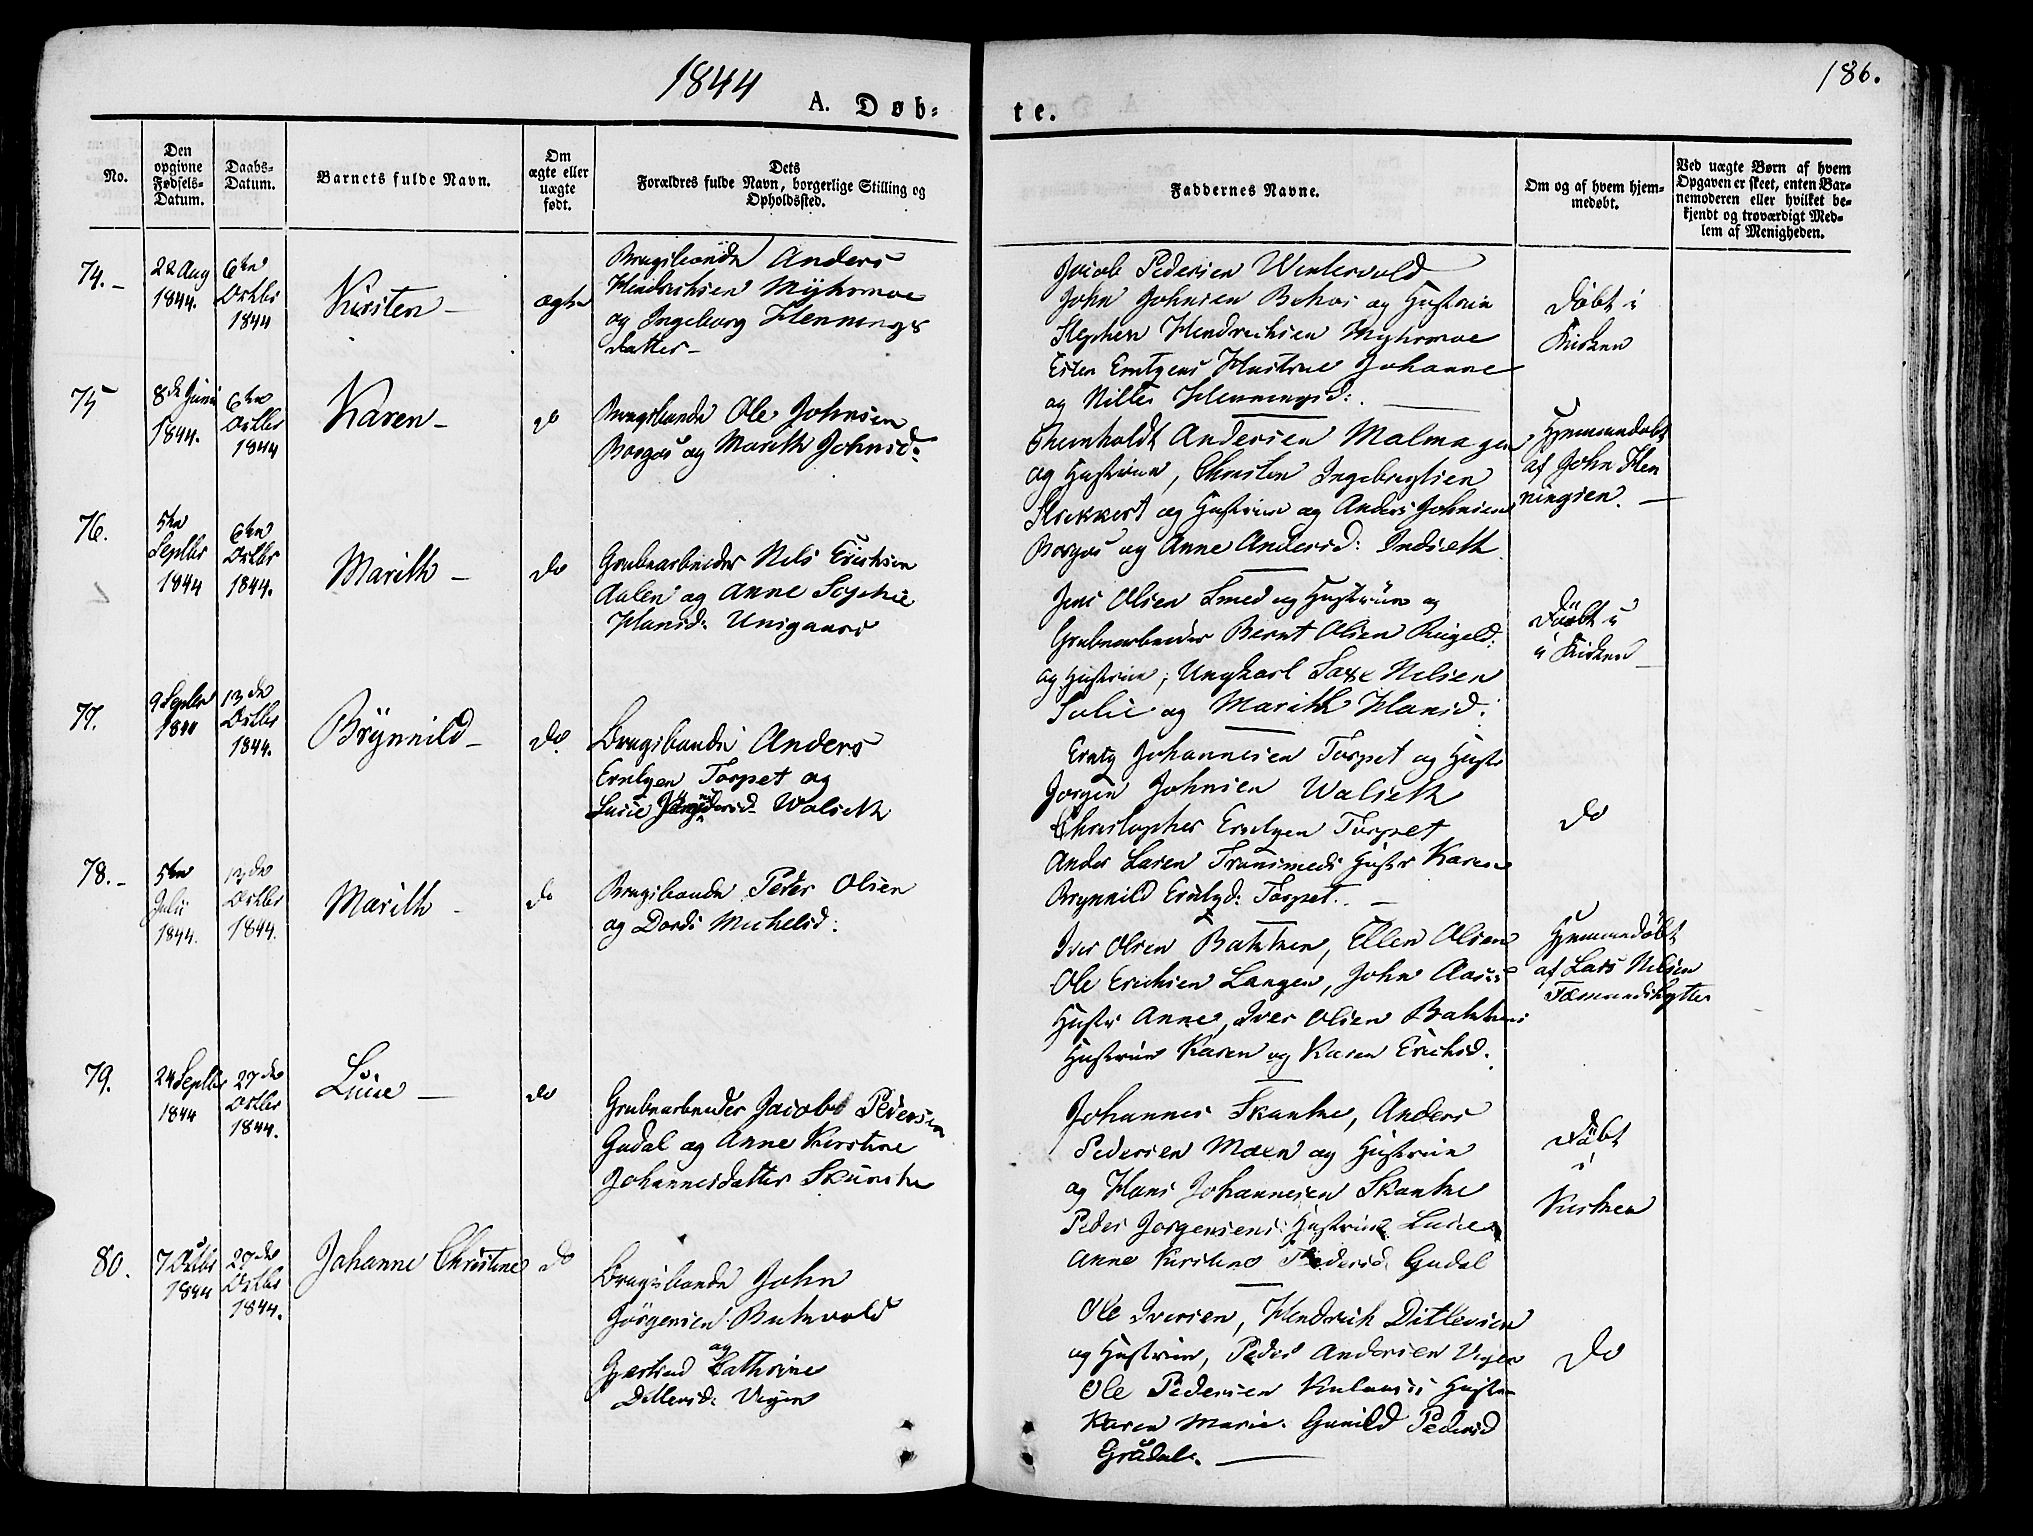 1844
186.
A. Døb-
te.
No.
Den
opgivne
Fødsels-
Datum.
Daabs-
Datum.
Barnets fulde Navn.
Om
ægte eller
uægte
født.
Dets
Forældres fulde Navn, borgerlige Stilling og
Opholdssted.
Faddernes Navne.
Om og af hvem hjem-
medøbt.
Ved uægte Børn af hvem
Opgaven er skeet, enten Bar-
nemoderen eller hvilket be-
kjendt og troværdigt Med-
lem af Menigheden.
74.
22 Aug
1844.
6te
Octbr
1844
Kirsten
ægte
Brugsbonde Anders
Hendrichsen Myhrmoe
og Ingeborg Hennings
datter
Jacob Pedersen Wintervold
John Johnsen og Hustrue
Stephen Hendrichsen Myhrmoe
Esten Erntsens Hustrue Johanne
og Henningsd:
Døbt i
Kirken
75
8de Juni
1844.
6te
Octbr
1844
Karen
do
Brugsbonde Ole Johnsen
Borgos og Marith Johnsd:
Andersen Malmagen
og Hustrue, Christen Ingebregtsen
og Hustrue og Anders Johnsen
Borgos og Anne Andersd: Indseth
Hjemmedøbt
af John Hen
ningsen.
76.
5te
Septbr
1844
6te
Octbr
1844.
Marith
do
Grubearbeider Nels Erichsen
Aalen og Anne Sophie
Hansd: Unsgaard
Jens Olsen Smed og Hustrue og
Grubearbeider Bernt Olsen
og Hustrue, Ungkarl Nelsen
og Marith Hansd:
Døbt i
i Kirken
77.
9 Septbr
1844
13de
Octbr
1844.
Brynnild
do.
Brugsbonde Anders
Erntsen Torpet og
Lucie Walseth
Erntz Johannesen Torpet og Hustr
Jorgen Johnsen Walseth
Christopher Erntsen Torpet
Anders Larsen Hustr Karen
Brynnild Erntsd: Torpet.
do
78.
5te
Julii
1844.
13de
Octbr
1844.
Marith
do
Brugsbonde Peder Olsen
og Dordi Michelsd:
Iver Olsen Bakken, Ellen Olsen
Ole Erichsen Langen, John Aases
Hustr Anne, Iver Olsen Bakkens
Hustrue Karen og Karen Erichsd.
Hjemmedøbt
af Lars Nelsen
Fæmundshytten
79.
24 Septbr
1844
27de
Octbr
1844.
Lucie
do
Grubearbeider Jacob Pedersen
Gudal og Anne Kirstine
Johannesdatter Skancke
Johannes Skanke, Anders
Pedersen Moen og Hustrue
og Hans Johannesen Skanke
Peder Jorgensens Hustrue Lucie
Anne Kirstine Pedersd. Gudal
Døbt
i
Kirken
80.
7 Octbr
1844
27de
Octbr
1844.
Johanne Christine
do
Brugsbonde John
Jörgensen Bukvold
og
Gjertrud Cathrine
Ditlevsd: Vegen
Ole Iversen, Hendrich Ditlevsen
og Hustrue, Peder Andersen Vegen
Ole Pedersen Hustr
Karen Marie. Gunild Pedersd
do